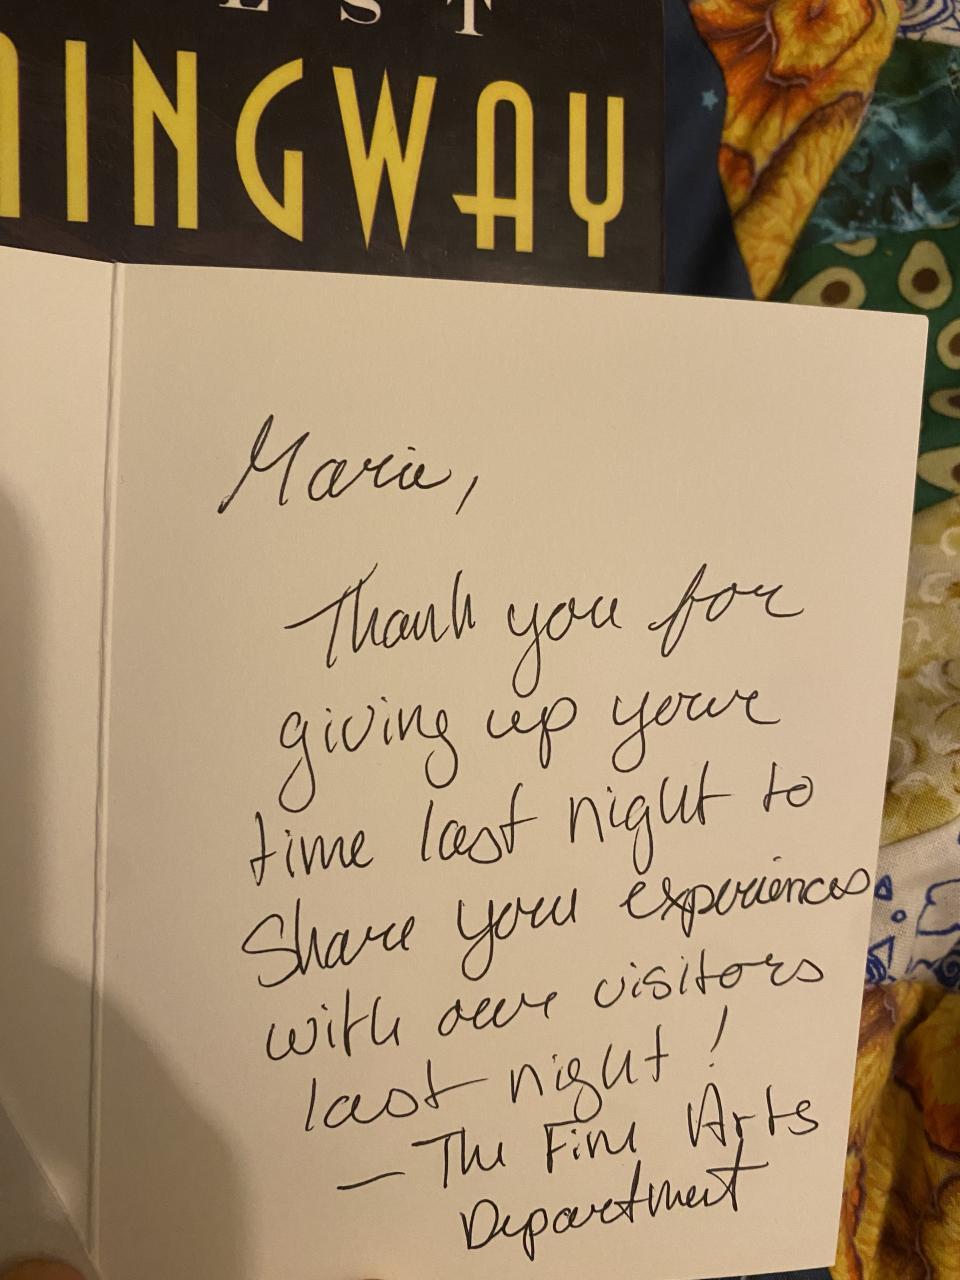 EST
MINGWAY
Marie,
Thank you for
giving up your
time last night to
share your experiences
with our visitors
last night!
— The Fine Arts
Department